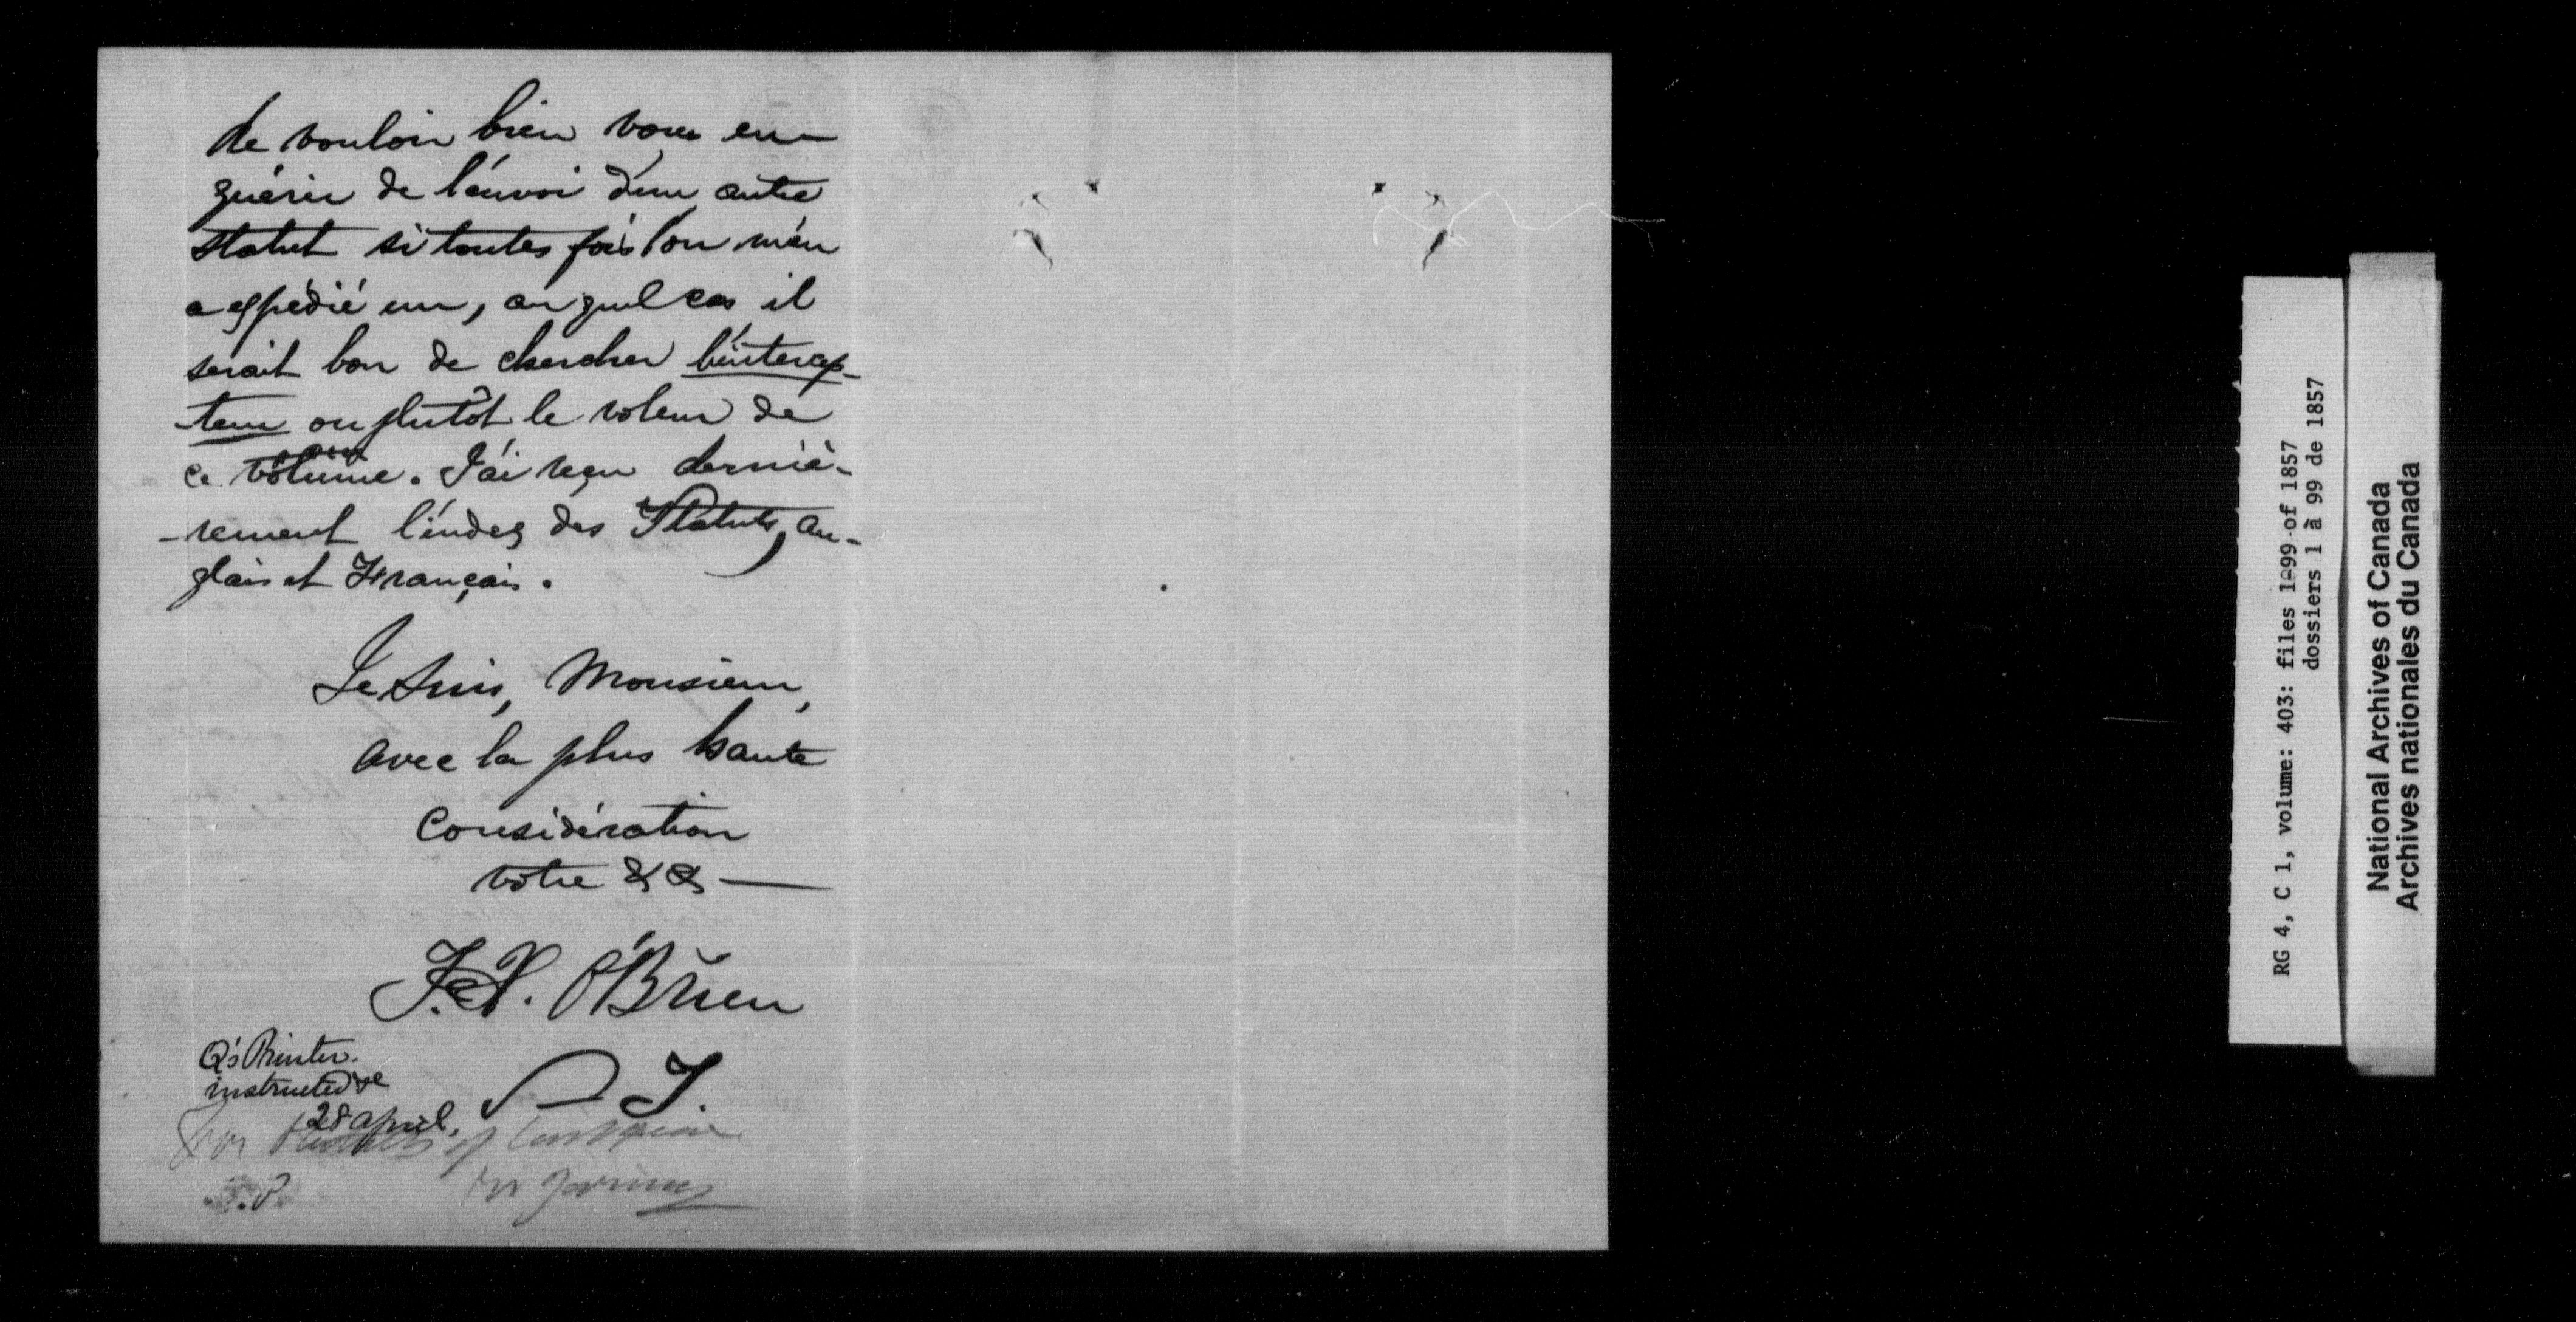 de vouloir bien vous en
quérir de l'envoi d'un autre
statut si toutes fois l'on m'en
a expédié un, au quel cas il
serait bon de chercher l'intercep-
-teur ou plutôt le voleur de
ce volume. J'ai reçu derniè-
-rement l'index des Statuts, an-
glais et Français.
Je suis, Monsieur,
avec la plus haute
Considération
votre &c &c —
F. X. O'Brien
J.
Q's Printer.
instructed
28 April.
RG 4, C 1, volume: 403: files 1-99 of 1857
dossiers 1 à 99 de 1857
National Archives of Canada
Archives nationales du Canada